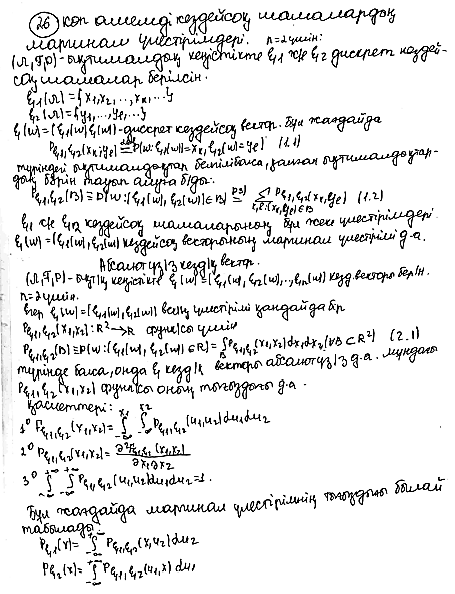 (26) көп өлшемді кездейсоқ шамалардың
маргинал үлестірімдері. n=2 үшін:
(Ω,F,P)-ықтималдық кеңістікте ξ1 және ξ2 дискрет кездей-
соқ шамалар берілсін.
ξ1(Ω)={x1,x2,...,xk,...}
ξ2(Ω)={y1,...,ye,...}
ξ(w)=(ξ1(w),ξ2(w))-дискрет кездейсоқ вектор. Бұл жағдайда
Pξ1,ξ2(xk,ye) ≡ P(w: ξ1(w)=xk, ξ2(w)=ye) (1.1)
түріндегі ықтималдықтар белгілі болса, қалған ықтималдықтар-
дың бәрін тауып алуға б/ды:
Pξ1,ξ2(B)≡P(w:(ξ1(w),ξ2(w))∈B) = Σ Pξ1,ξ2(xk,ye) (1.2)
k,e:(xk,ye)∈B
ξ1 және ξ2 кездейсоқ шамаларының бұл жеке үлестірімдері
ξ(w)=(ξ1(w),ξ2(w)) кездейсоқ векторының маргинал үлестірімі д.а.
Абсолют үз/з кезд/қ вектор.
(Ω,F,P)-ықт/қ кеңістікте ξ(w)=(ξ1(w),ξ2(w),...,ξn(w)) кезд.векторы бер/н.
n=2 үшін.
Егер ξ(w)=(ξ1(w),ξ2(w)) үлестірімі қандай да бір
Pξ1,ξ2(x1,x2): R²→R функ/сы үшін
Pξ1,ξ2(B)≡P(w:(ξ1(w),ξ2(w)∈B)=∫Pξ1,ξ2(x1,x2)dx1dx2 (∀B⊂R²) (2.1)
B
түрінде болса, онда ξ кезд/қ векторы абсолют үз/з д.а. мұндағы
Pξ1,ξ2(x1,x2) функ/сы оның тығыздығы д.а.
Қасиеттері:
1⁰ Fξ1,ξ2(x1,x2)=∫_{-∞}^{x1}∫_{-∞}^{x2} Pξ1,ξ2(u1,u2)du1du2
2⁰ Pξ1,ξ2(x1,x2)=∂²Fξ1,ξ2(x1,x2)/∂x1∂x2
3⁰ ∫_{-∞}^{+∞}∫_{-∞}^{+∞} Pξ1,ξ2(u1,u2)du1du2=1.
Бұл жағдайда маргинал үлестірімнің тығыздығы былай
табылады:
Pξ1(x)=∫_{-∞}^{+∞} Pξ1,ξ2(x,u2)du2
Pξ2(x)=∫_{-∞}^{+∞} Pξ1,ξ2(u1,x)du1